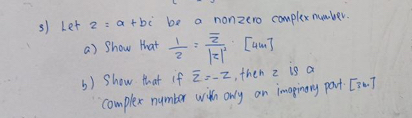 3) Let z = a + bi be a nonzero complex number.
a) Show that 1/z = z̅/|z|² . [4m]
b) Show that if z̅ = -z, then z is a
complex number with only an imaginary part. [3m]